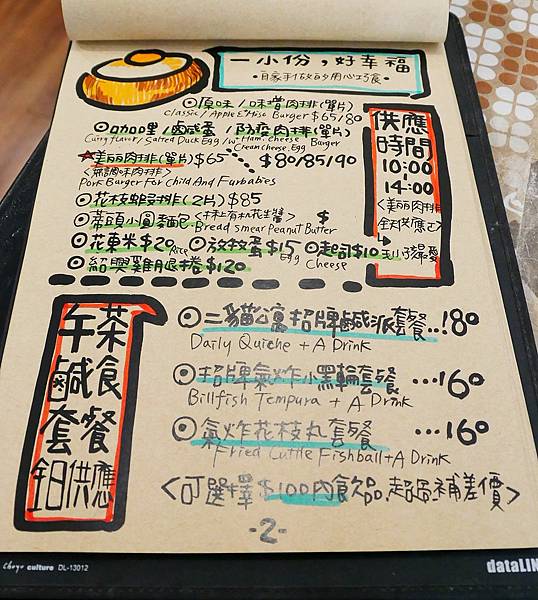 一小份，好幸福
·自家手做的用心巧食·
◎原味／味噌肉排(單片)
Classic / Apple & Miso Burger $65/80
◎咖哩／鹹咸蛋／防疫肉排(單片)
Curry flavor / Salted Duck Egg / w Ham cheese Burger
Cream cheese, Egg
★美麗肉排(單片)$65 $80/85/90
<無調味肉排>
Pork Burger For Child And Furbabies
◎花枝蝦排(2片)$85
◎蒂頭小圓麵包<抹上有机花生醬> $
Bread smear Peanut Butter
◎花東米$20 Rice ◎放牧蛋$15 Egg ◎起司$10 Cheese
◎紹興雞腿捲$120
供應
時間
10:00
14:00
<美麗肉排
全天供應>
午茶
鹹食
套餐
全日供應
◎二貓公寓招牌鹹派套餐..180
Daily Quiche + A Drink
◎招牌氣炸小黑輪套餐 ...160
Billfish Tempura + A Drink
◎氣炸花枝丸套餐 ...160
Fried Cuttle Fishball + A Drink
<可選擇$100內飲品,超過補差價>
-2-
culture DL-13012
dataLIN